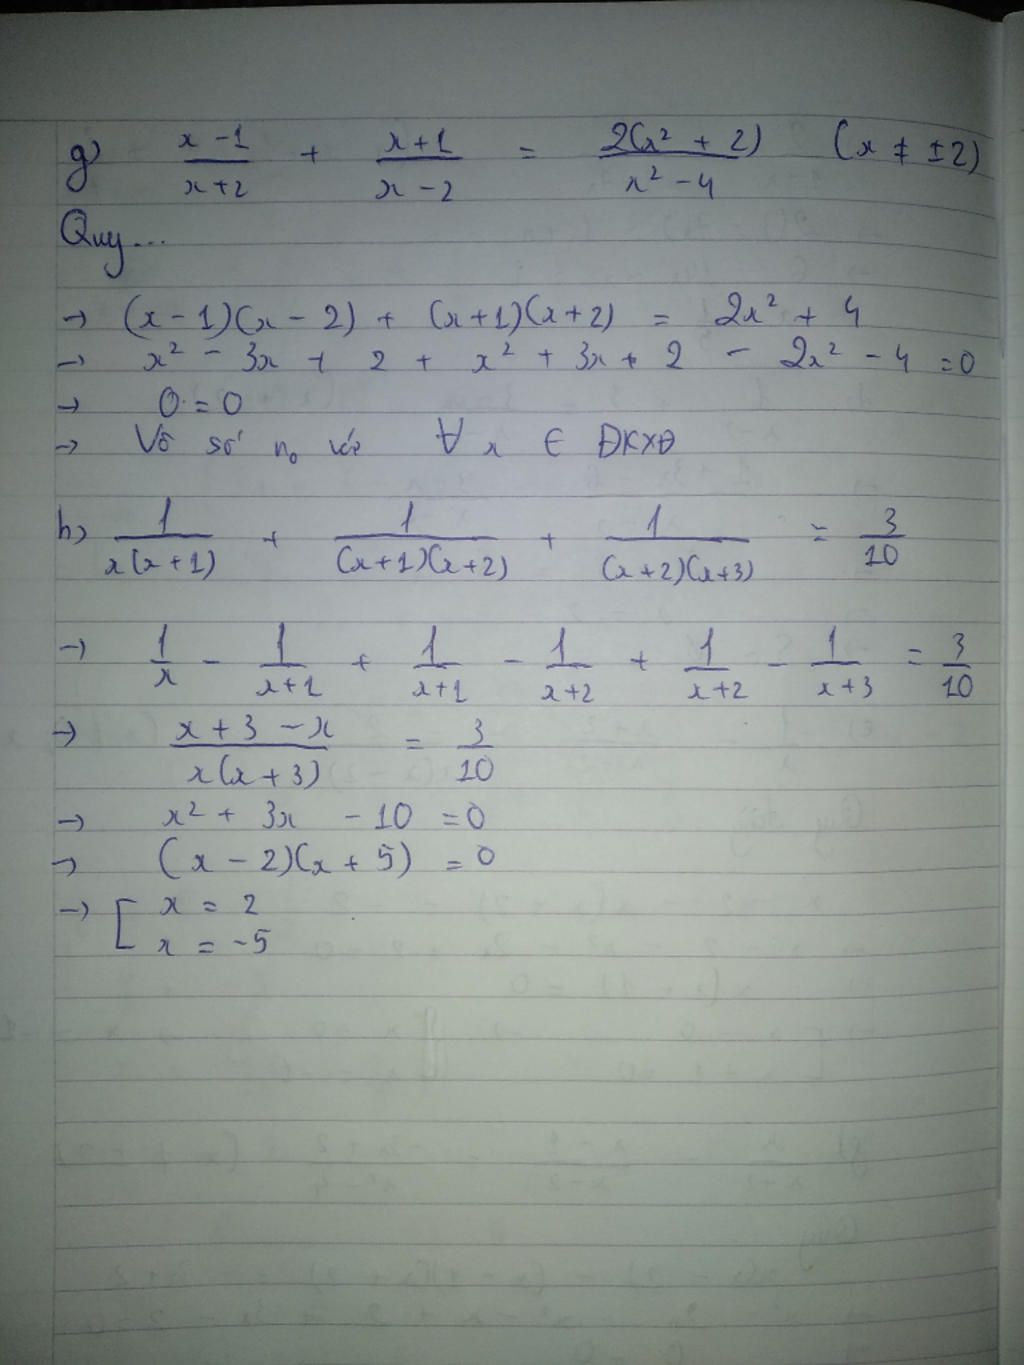 g) \frac{x-1}{x+2} + \frac{x+1}{x-2} = \frac{2(x² + 2)}{x² - 4} (x ≠ ±2)
Quy...
→ (x - 1)(x - 2) + (x+1)(x+2) = 2x² + 4
→ x² - 3x + 2 + x² + 3x + 2 - 2x² - 4 = 0
→ 0 = 0
→ Vô số n₀ với ∀ x ∈ ĐKXĐ
h) \frac{1}{x(x+1)} + \frac{1}{(x+1)(x+2)} + \frac{1}{(x+2)(x+3)} = \frac{3}{10}
→ \frac{1}{x} - \frac{1}{x+1} + \frac{1}{x+1} - \frac{1}{x+2} + \frac{1}{x+2} - \frac{1}{x+3} = \frac{3}{10}
→ \frac{x+3-x}{x(x+3)} = \frac{3}{10}
→ x² + 3x - 10 = 0
→ (x - 2)(x + 5) = 0
→ [ x = 2
x = -5